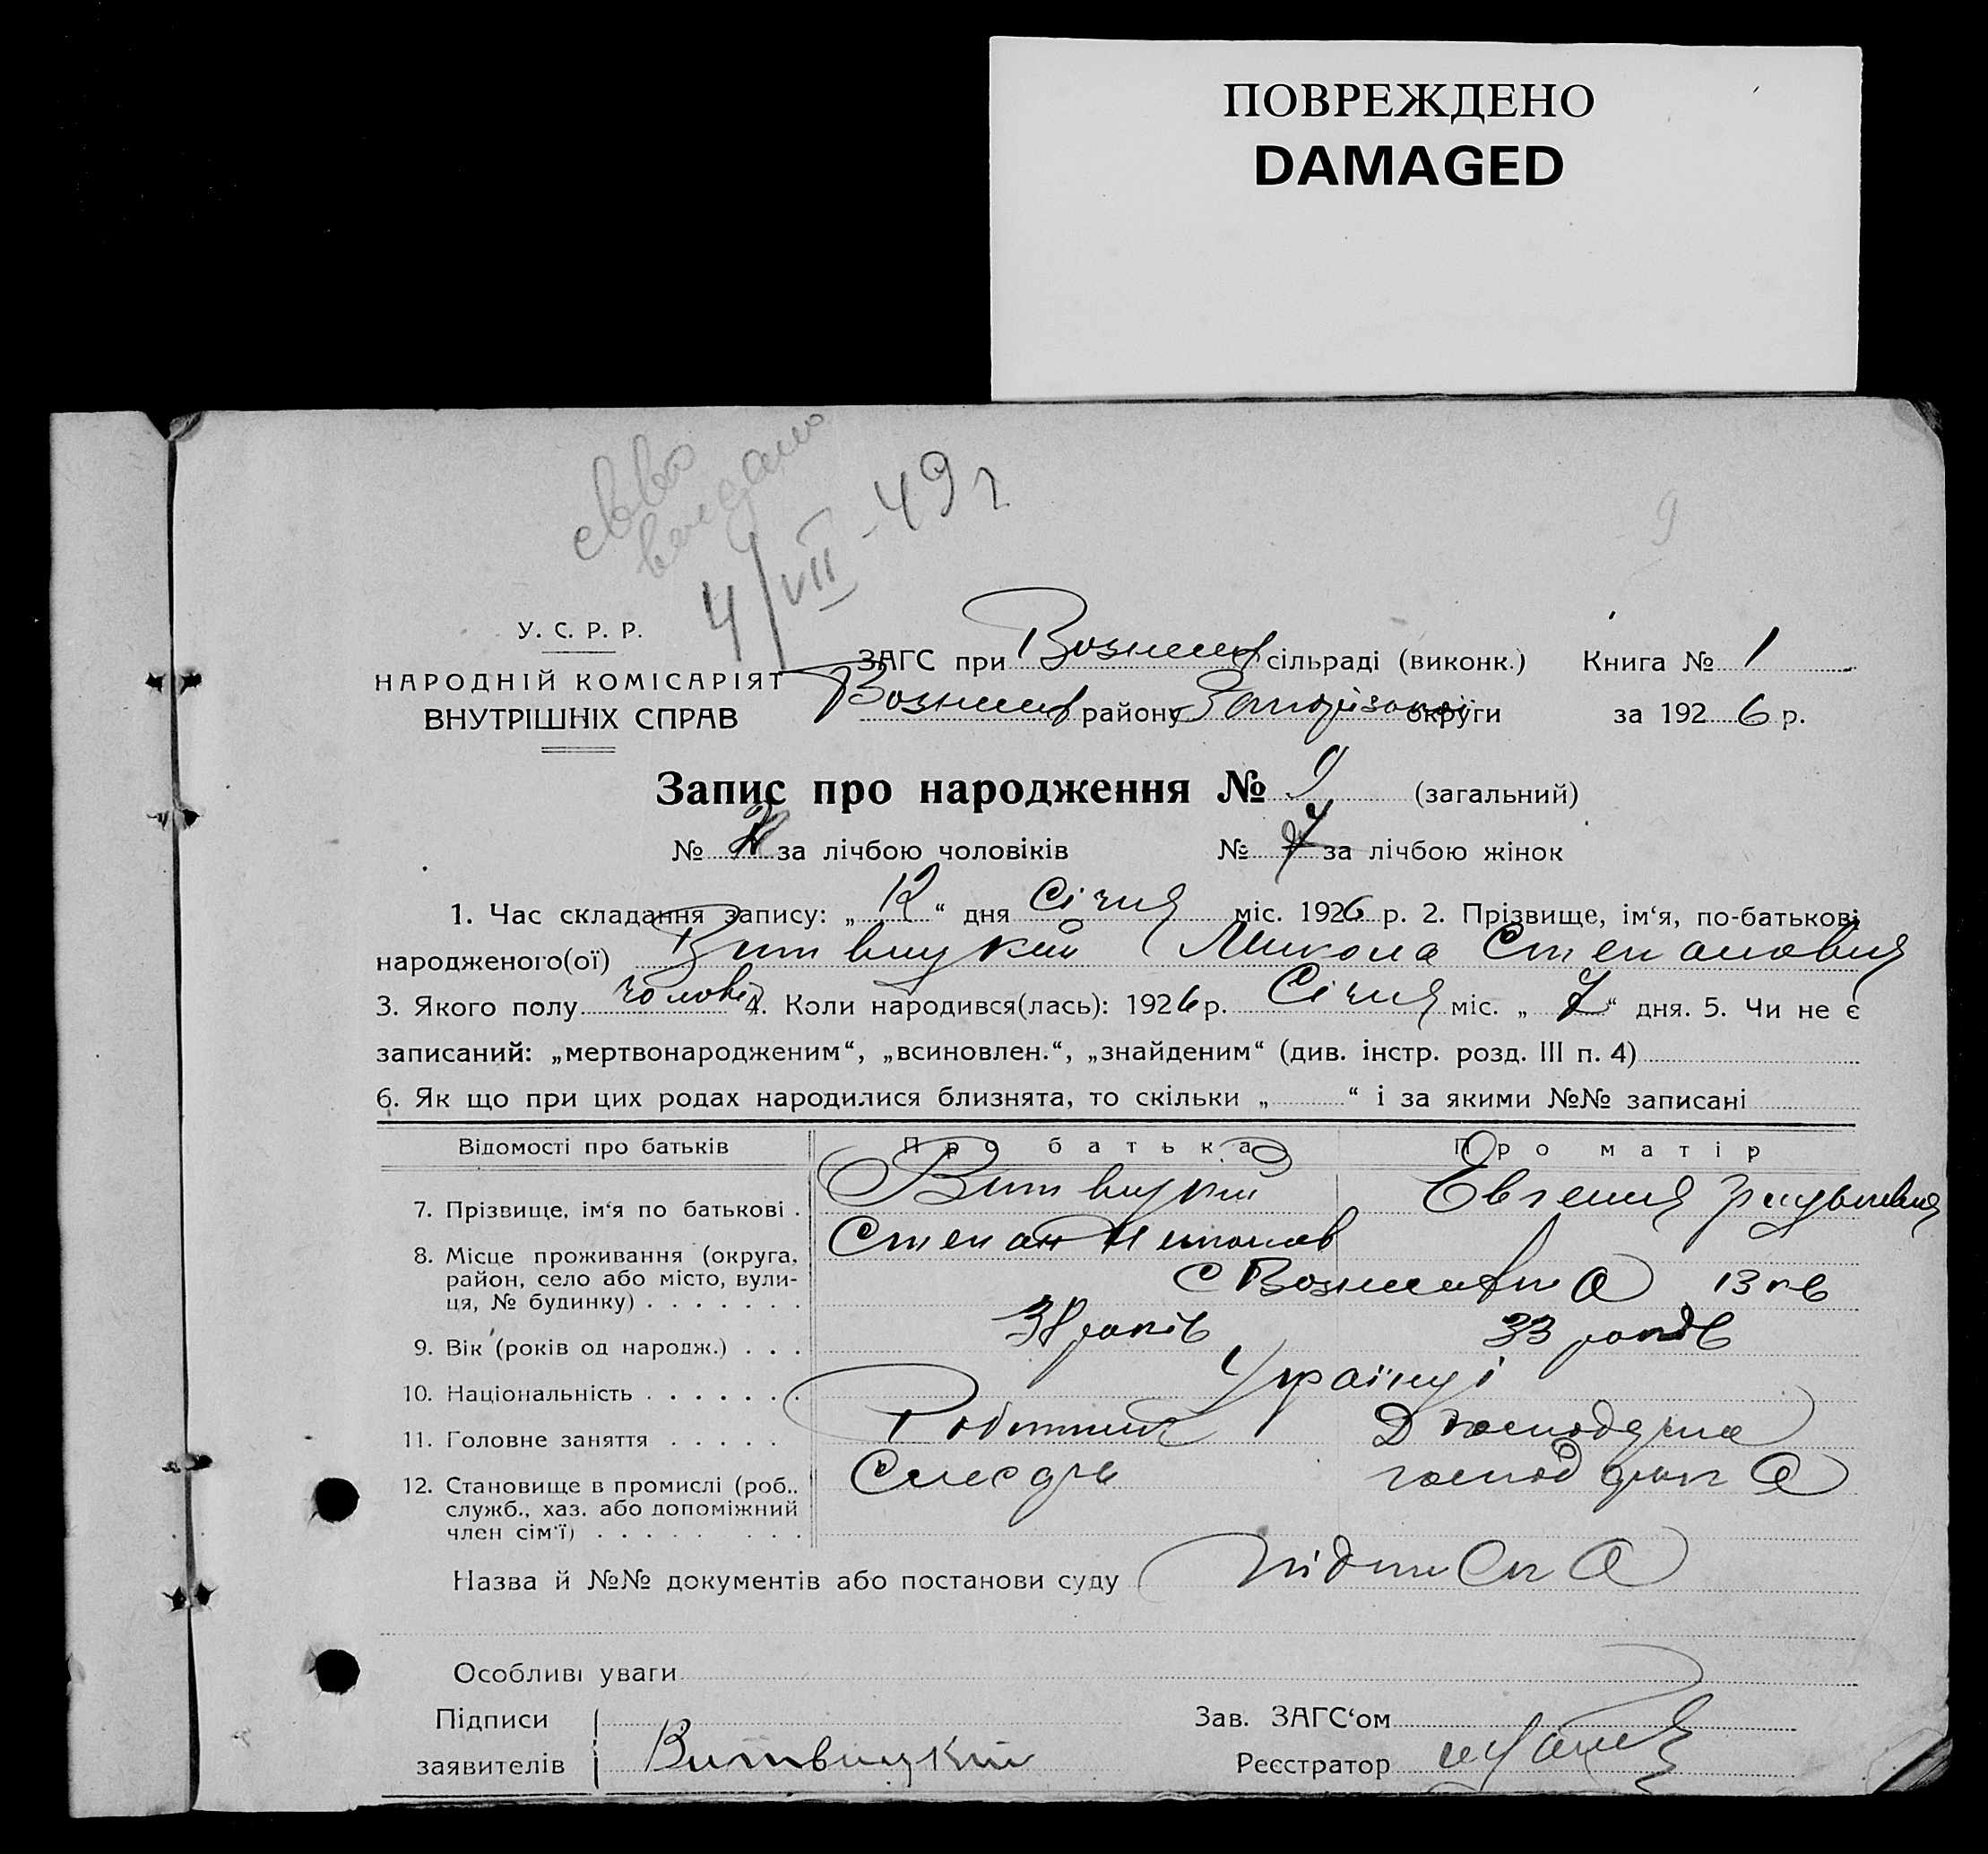 ПОВРЕЖДЕНО
DAMAGED
выдано
4/VII-49 г
9
У. С. Р. Р.
НАРОДНІЙ КОМІСАРІЯТ
ВНУТРІШНІХ СПРАВ
ЗАГС при Вознесен сільраді (виконк.) Книга № 1
Вознесен району округи за 1926 р.
Запис про народження № 9 (загальний)
№ за лічбою чоловіків № 7 за лічбою жінок
1. Час складання запису: „12“ дня Січня міс. 1926 р. 2. Прізвище, ім‘я, по-батькові
народженого(ої) Витвицкий Микола Степанович
3. Якого полу чоловік 4. Коли народився(лась): 1926 р. Січня міс. „7“ дня. 5. Чи не є
записаний: „мертвонародженим“, „всиновлен.“, „знайденим“ (див. інстр. розд. III п. 4)
6. Як що при цих родах народилися близнята, то скільки „ “ і за якими №№ записані
Відомості про батьків Про батька Про матір
7. Прізвище, ім‘я по батькові . Витвицкий Евгения
Степан
8. Місце проживання (округа,
район, село або місто, вули-
ця, № будинку) . . . . . . . С Вознесенка
9. Вік (років од народж.) . . . 38 років 33 років
10. Національність . . . . . . . Українці
11. Головне заняття . . . . . Робітник Д господарка
12. Становище в промислі (роб..
служб., хаз. або допоміжний
член сім‘ї) . . . . . . . . Слесарь господарка
Назва й №№ документів або постанови суду підписка
Особливі уваги
Підписи
заявителів Витвицкий
Зав. ЗАГС‘ом
Реєстратор